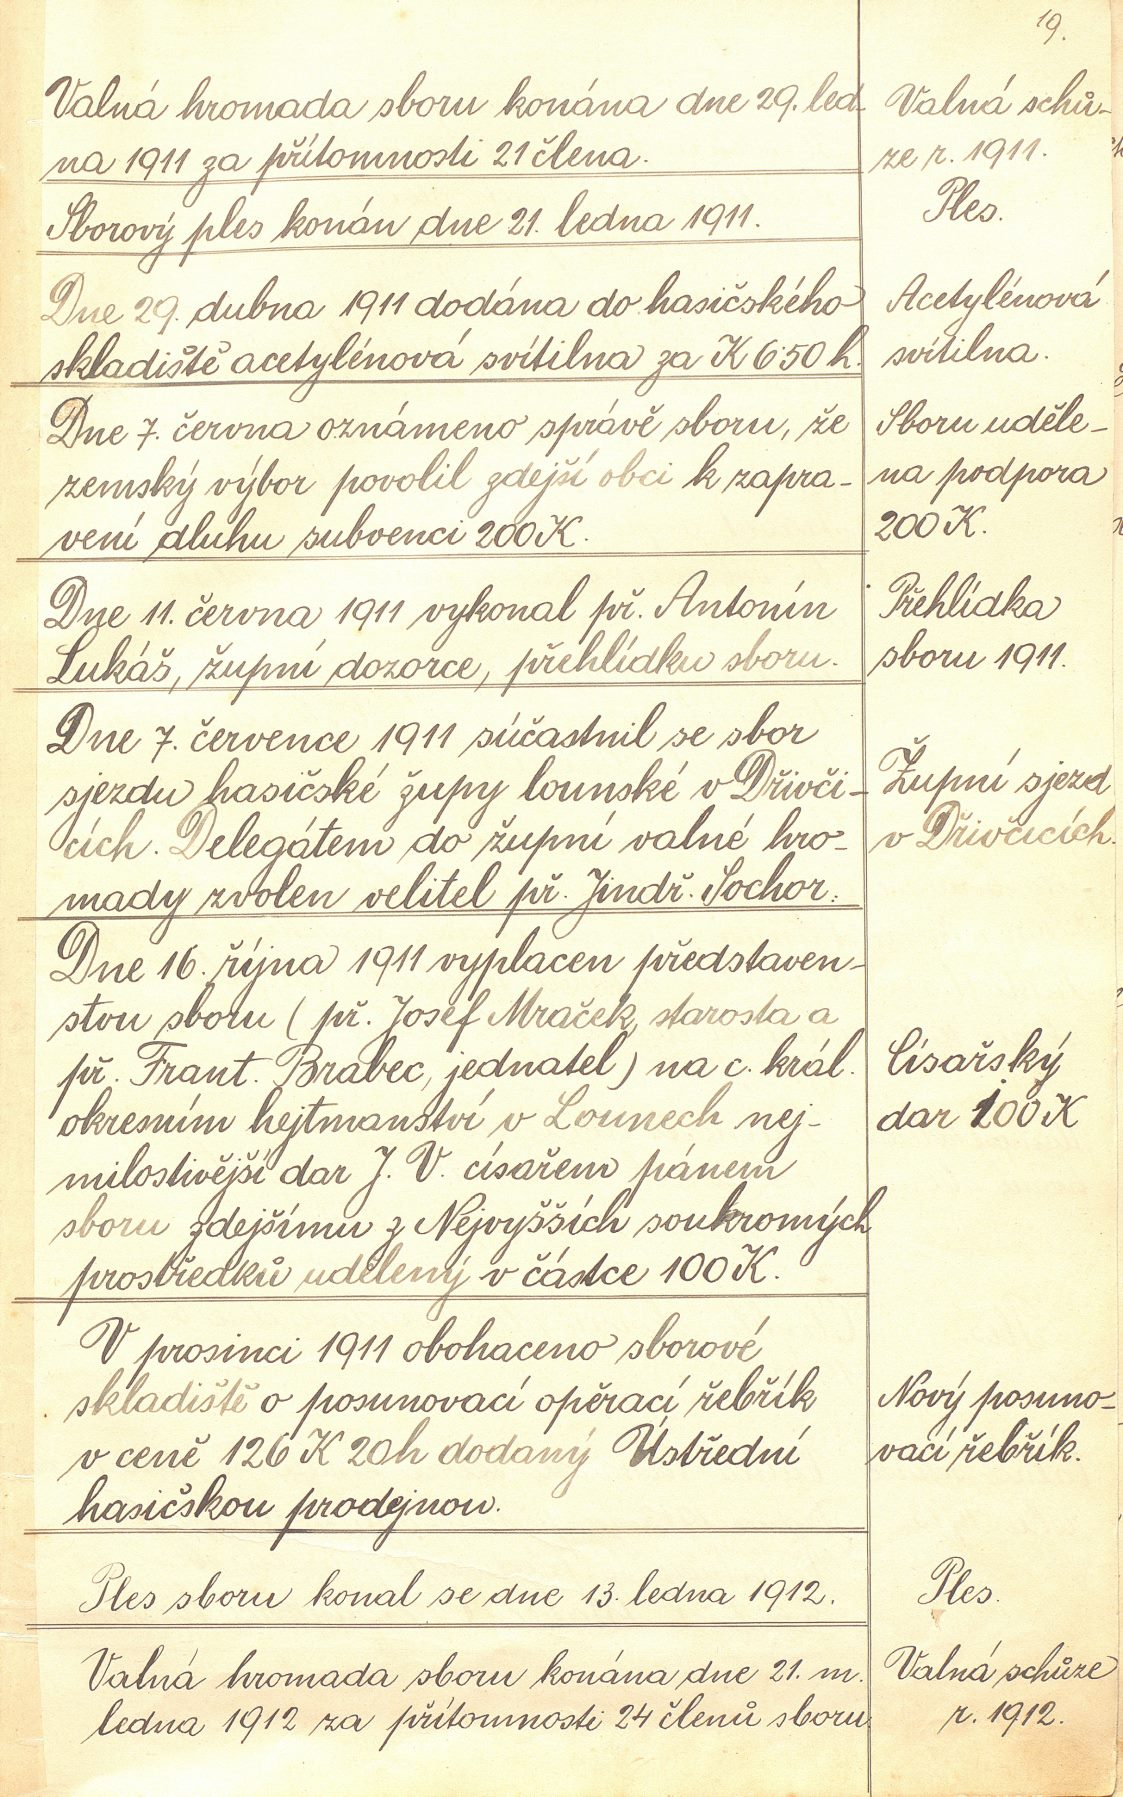 19.
Valná hromada sboru konána dne 29. led-
na 1911 za přítomnosti 21 člena.
Valná schů-
ze r. 1911.
Sborový ples konán dne 21. ledna 1911.
Ples.
Dne 29. dubna 1911 dodána do hasičského
skladiště acetylénová svítilna za K 6·50 h.
Acetylénová
svítilna.
Dne 7. června oznámeno správě sboru, že
zemský výbor povolil zdejší obci k zapra-
vení dluhu subvenci 200 K.
Sboru uděle-
na podpora
200 K.
Dne 11. června 1911 vykonal př. Antonín
Lukáš, župní dozorce, přehlídku sboru.
Přehlídka
sboru 1911.
Dne 7. července 1911 súčastnil se sbor
sjezdu hasičské župy lounské v Dřivči-
cích. Delegátem do župní valné hro-
mady zvolen velitel př. Jindř. Sochor.
Župní sjezd
v Dřivčicích.
Dne 16. října 1911 vyplacen představen-
stvu sboru ( př. Josef Mraček, starosta a
př. Frant. Brabec, jednatel) na c. král.
okresním hejtmanství v Lounech nej-
milostivější dar J. V. císařem pánem
sboru zdejšímu z Nejvyšších soukromých
prostředků udělený v částce 100 K.
Císařský
dar 100 K
V prosinci 1911 obohaceno sborové
skladiště o posunovací opěrací řebřík
v ceně 126 K 20 h dodaný Ústřední
hasičskou prodejnou.
Nový posuno-
vací řebřík.
Ples sboru konal se dne 13. ledna 1912.
Ples.
Valná hromada sboru konána dne 21. m.
ledna 1912 za přítomnosti 24 členů sboru
Valná schůze
r. 1912.